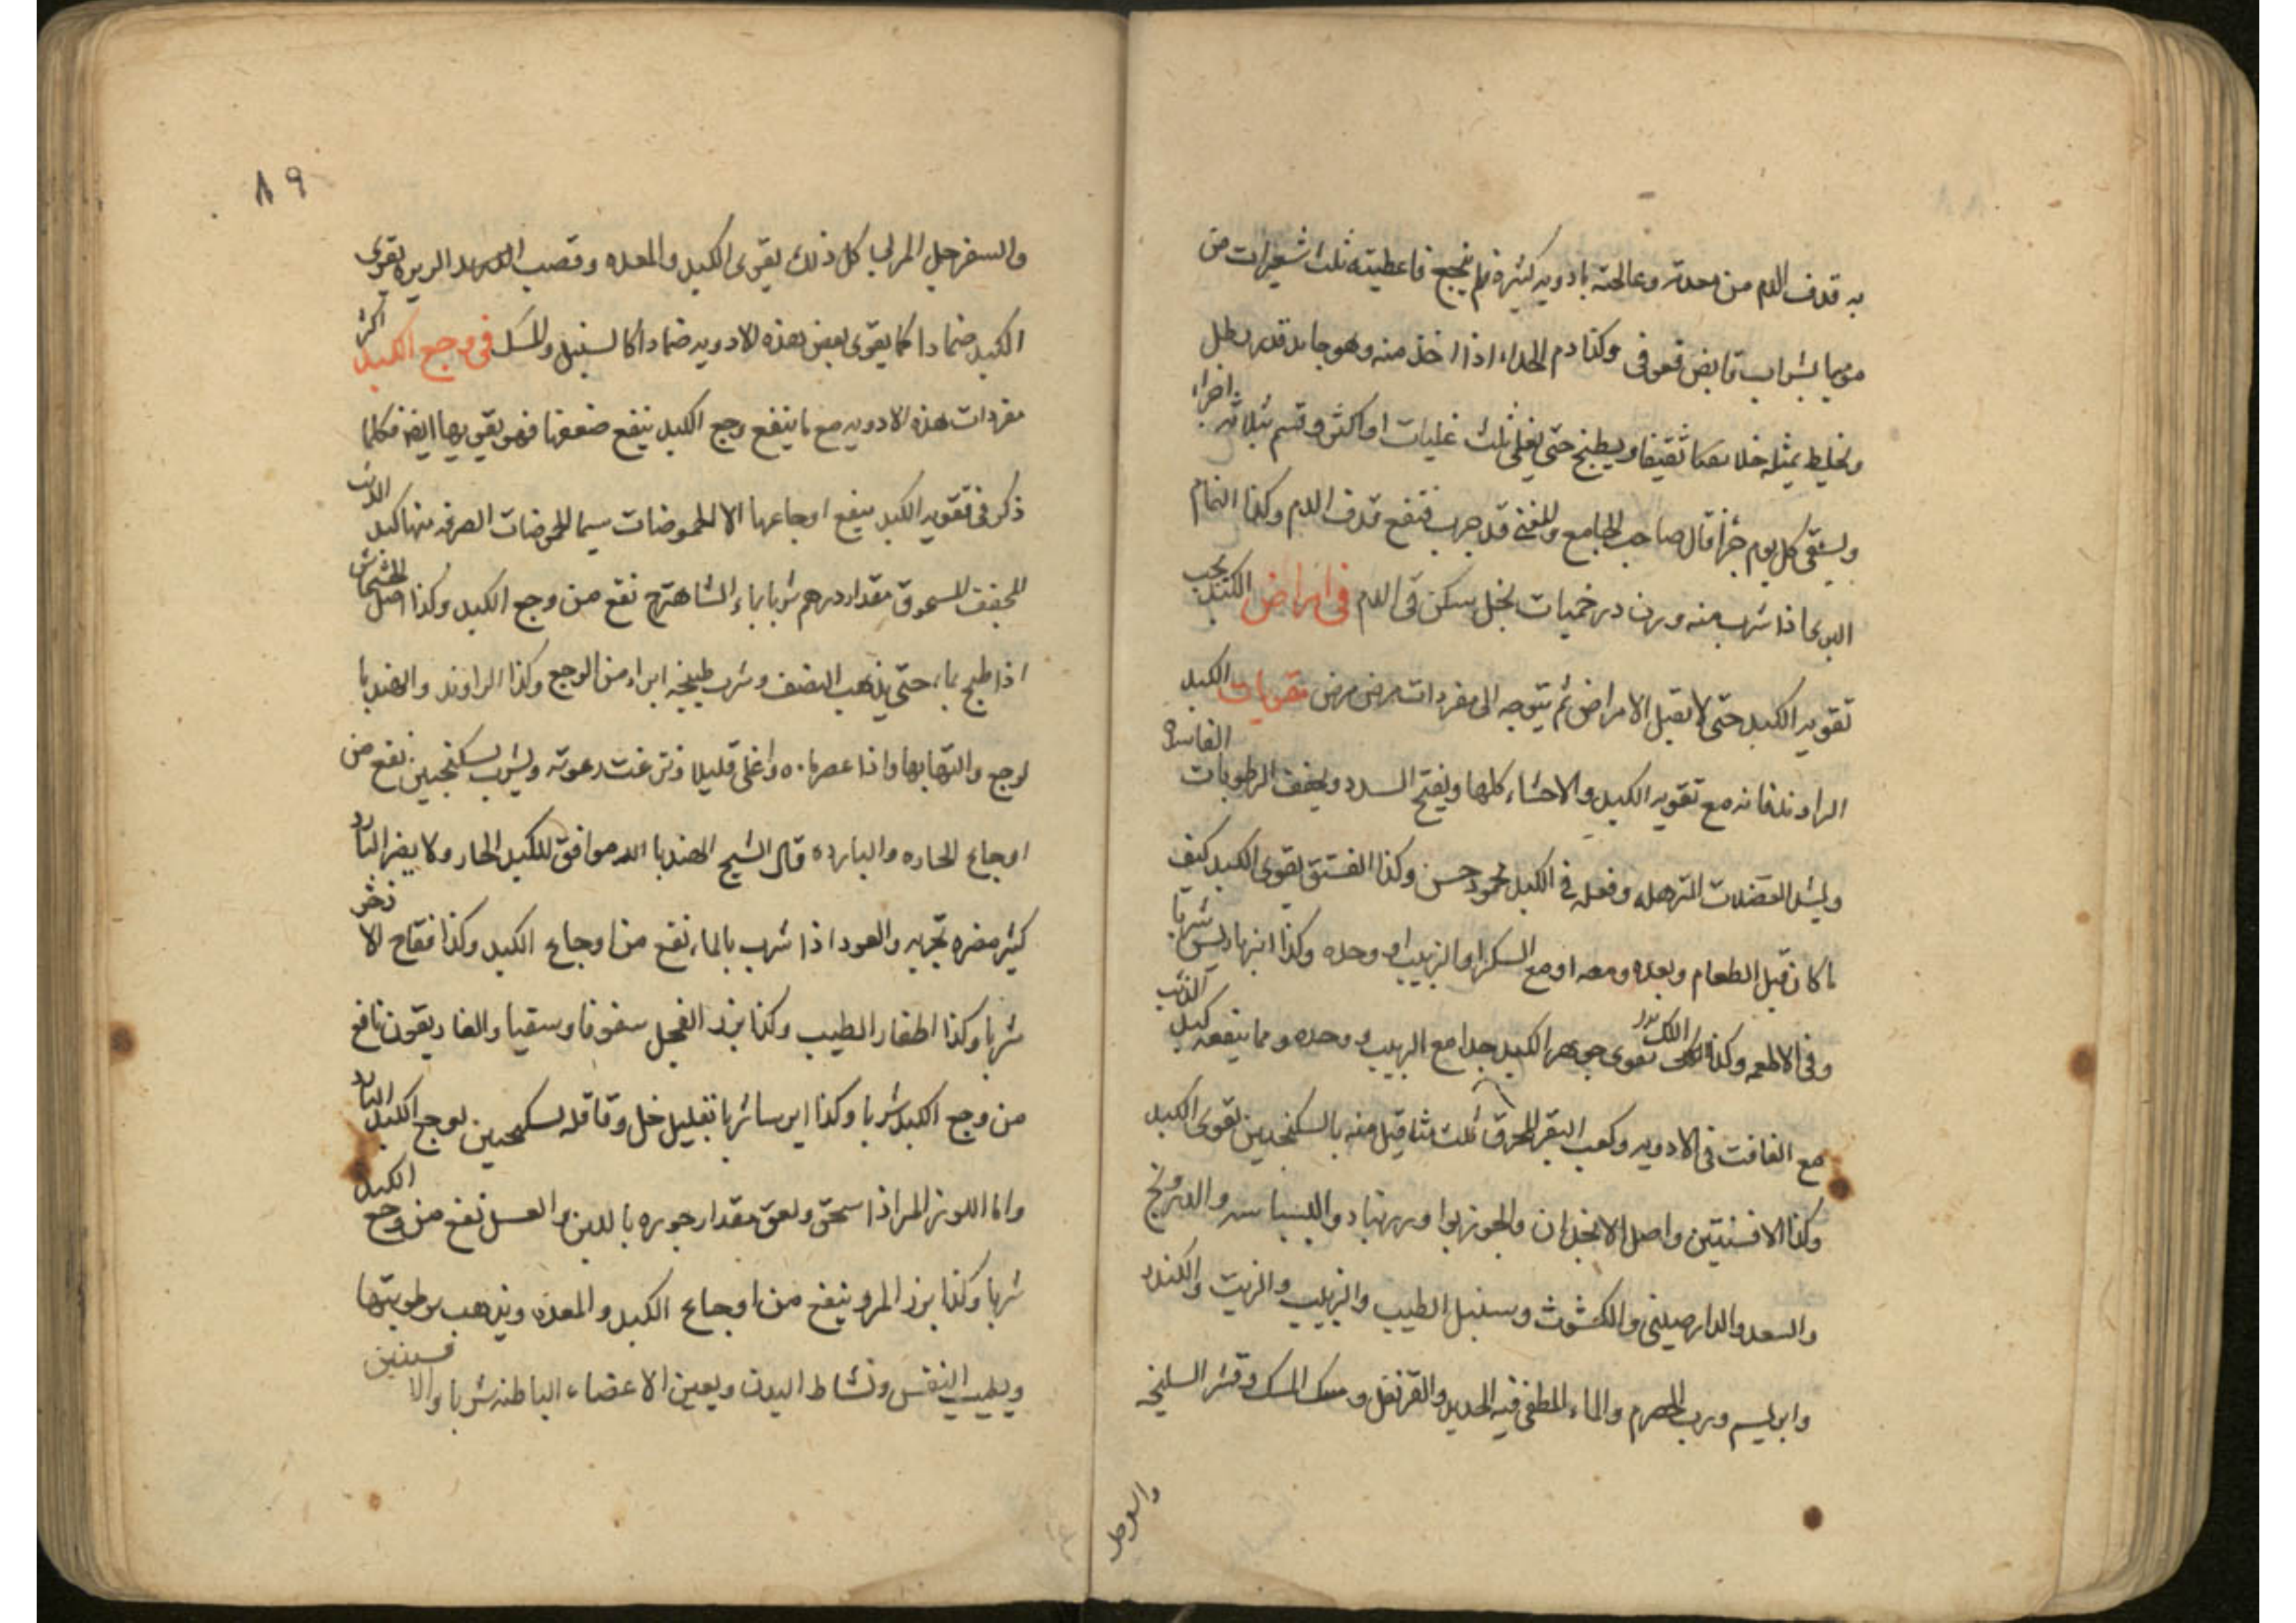 به قذف الدم من معدته وعالجته بادويه كثيرة فلم ينجح فاعطيته ثلث شعيرات من
موميا بشراب قابض فعوفى وكذا دم الجداء اذا اخذ منه وهو جامد قدر رطل
ويخلط بمثله خلا ثقيفا ويطبخ حتى يغلى ثلث غليات او اكثر وقسم بثلاثه اجزاء
ويسقى كل يوم جزأ قال صاحب الجامع والمغنى قد جرب فنفع قذف الدم وكذا النمام
البرى اذا شرب منه وزن درخميات بخل سكن قى الدم فى امراض الكبد يجب
تقويه الكبد حتى لا يقبل الامراض ثم يتوجه الى مفردات مرض مرض مقويات الكبد
الراوند فانه مع تقويه الكبد والاحشاء كلها ويفتح السدد ويجفف الرطوبات الفاسده
ويشد العضلات المترهله وفعله فى الكبد محمود حسن وكذا الفستق يقوى الكبد كيف
ما كان قبل الطعام وبعده ومعه او مع السكر او الزبيب او وحده وكذا انبرباريس شربا
وفى الاطعمه وكذا اللك يقوى جوهر الكبد جدا مع الزبيب و وحده ومما ينفعه كبد الذئب
مع الغافت فى الادويه وكعب البقر المحرق ثلث مثاقيل منه بالسكنجبين يقوى الكبد
وكذا الافسنتين واصل الانجدان والجوز بوا وزرنباد والبسباسه والدرونج
والسعد والدارصينى والكشوث وسنبل الطيب والزبيب والزيت والكندر
وابريسم ورب الحصرم والماء المطفى فيه الحديد والقرنفل و المسك وقشر السليخه
والسفرجل
٨٩
والسفرجل المربى كل ذلك يقوى الكبد والمعده وقصب الذريره يقوى
الكبد ضمادا كما يقوى بعض هذه الادويه ضمادا كالسنبل والمسك فى وجع الكبد اكثر
مفردات هذه الادويه مع ما ينفع وجع الكبد ينفع ضعفها فهو يقويها ايضا فكلما
ذكر فى تقويه الكبد ينفع اوجاعها الا الحموضات سيما الحموضات الصرفه منها كبد الذئب
المجفف المسحوق مقدار درهم شربا بماء الشاهترج نفع من وجع الكبد وكذا اصل الخشخاش
اذا طبخ بماء حتى يذهب النصف وشرب طبيخه ابراء من الوجع وكذا الراوند والهندبا
لوجع والتهابها واذا عصر ماءه واغلى قليلا ونزعت رغوته ويشرب بسكنجبين نفع من
اوجاع الحاره والبارده قال الشيخ الهندبا انه موافق للكبد الحار ولا يضر البارد
كثير مضره تجربه والعود اذا شرب بالماء نفع من اوجاع الكبد وكذا فقاح الاذخر
شربا وكذا اظفار الطيب وكذا بزر الفجل سفوفا وسقيا والغاريقون نافع
من وجع الكبد شربا وكذا ايرسا شربا بقليل خل وقاقله بسكنجبين لوجع الكبد البارد
واما اللوز المر اذا سحق ولعق مقدار جوزه باللبن والعسل نفع من وجع الكبد
شربا وكذا بزر المرو ينفع من اوجاع الكبد والمعده ويذهب برطوبتها
ويطيب النفس ونشاط البدن ويعين الاعضاء الباطنه شربا والافسنتين